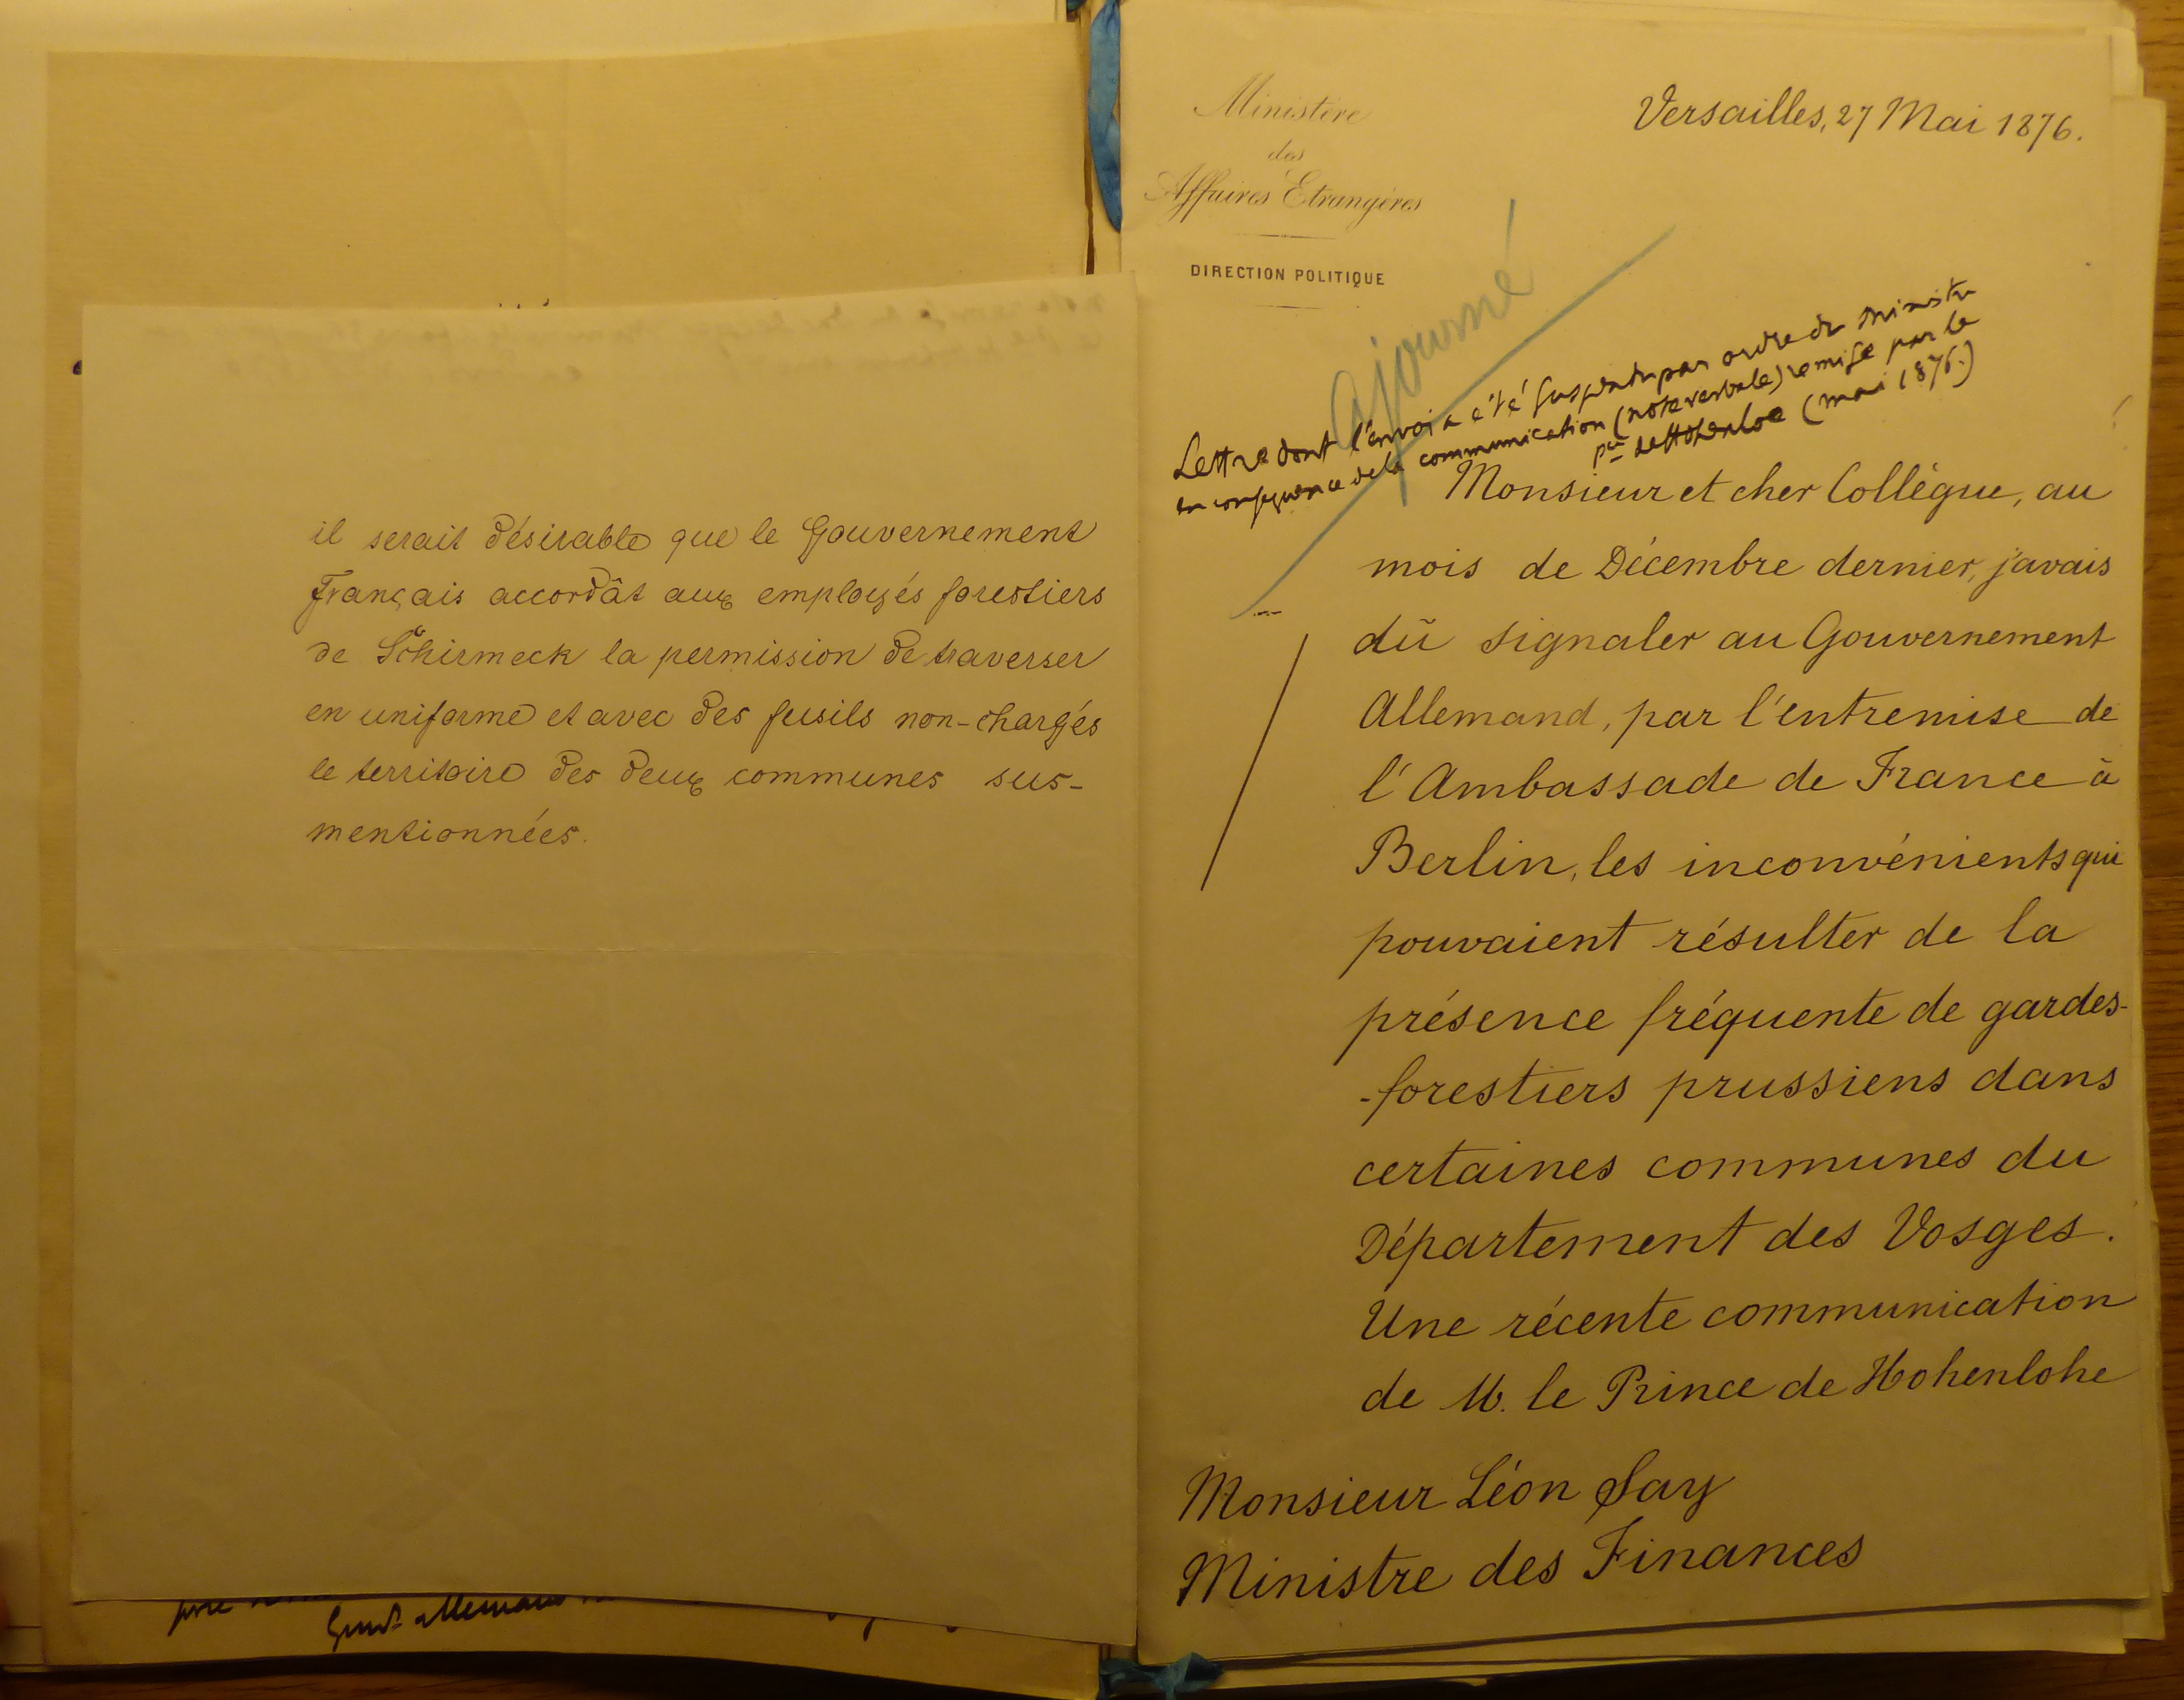 il serait désirable que le Gouvernement
Français accordât aux employés forestiers
de Schirmeck la permission de traverser
en uniforme et avec des fusils non-chargés
le territoire des deux communes sus-
mentionnées.
Gvnt allemand
Ministère
des
Affaires Etrangères
DIRECTION POLITIQUE
Versailles, 27 Mai 1876.
Ajourné
Lettre dont l'envoi a été suspendu par ordre du Ministre
en conséquence de la communication (note verbale) remise par le
pce de Hohenloe (mai 1876.)
Monsieur et cher Collègue, au
mois de Décembre dernier, j'avais
dû signaler au Gouvernement
Allemand, par l'entremise de
l'Ambassade de France à
Berlin, les inconvénients qui
pouvaient résulter de la
présence fréquente de gardes-
-forestiers prussiens dans
certaines communes du
Département des Vosges.
Une récente communication
de M. le Prince de Hohenlohe
Monsieur Léon Say
Ministre des Finances